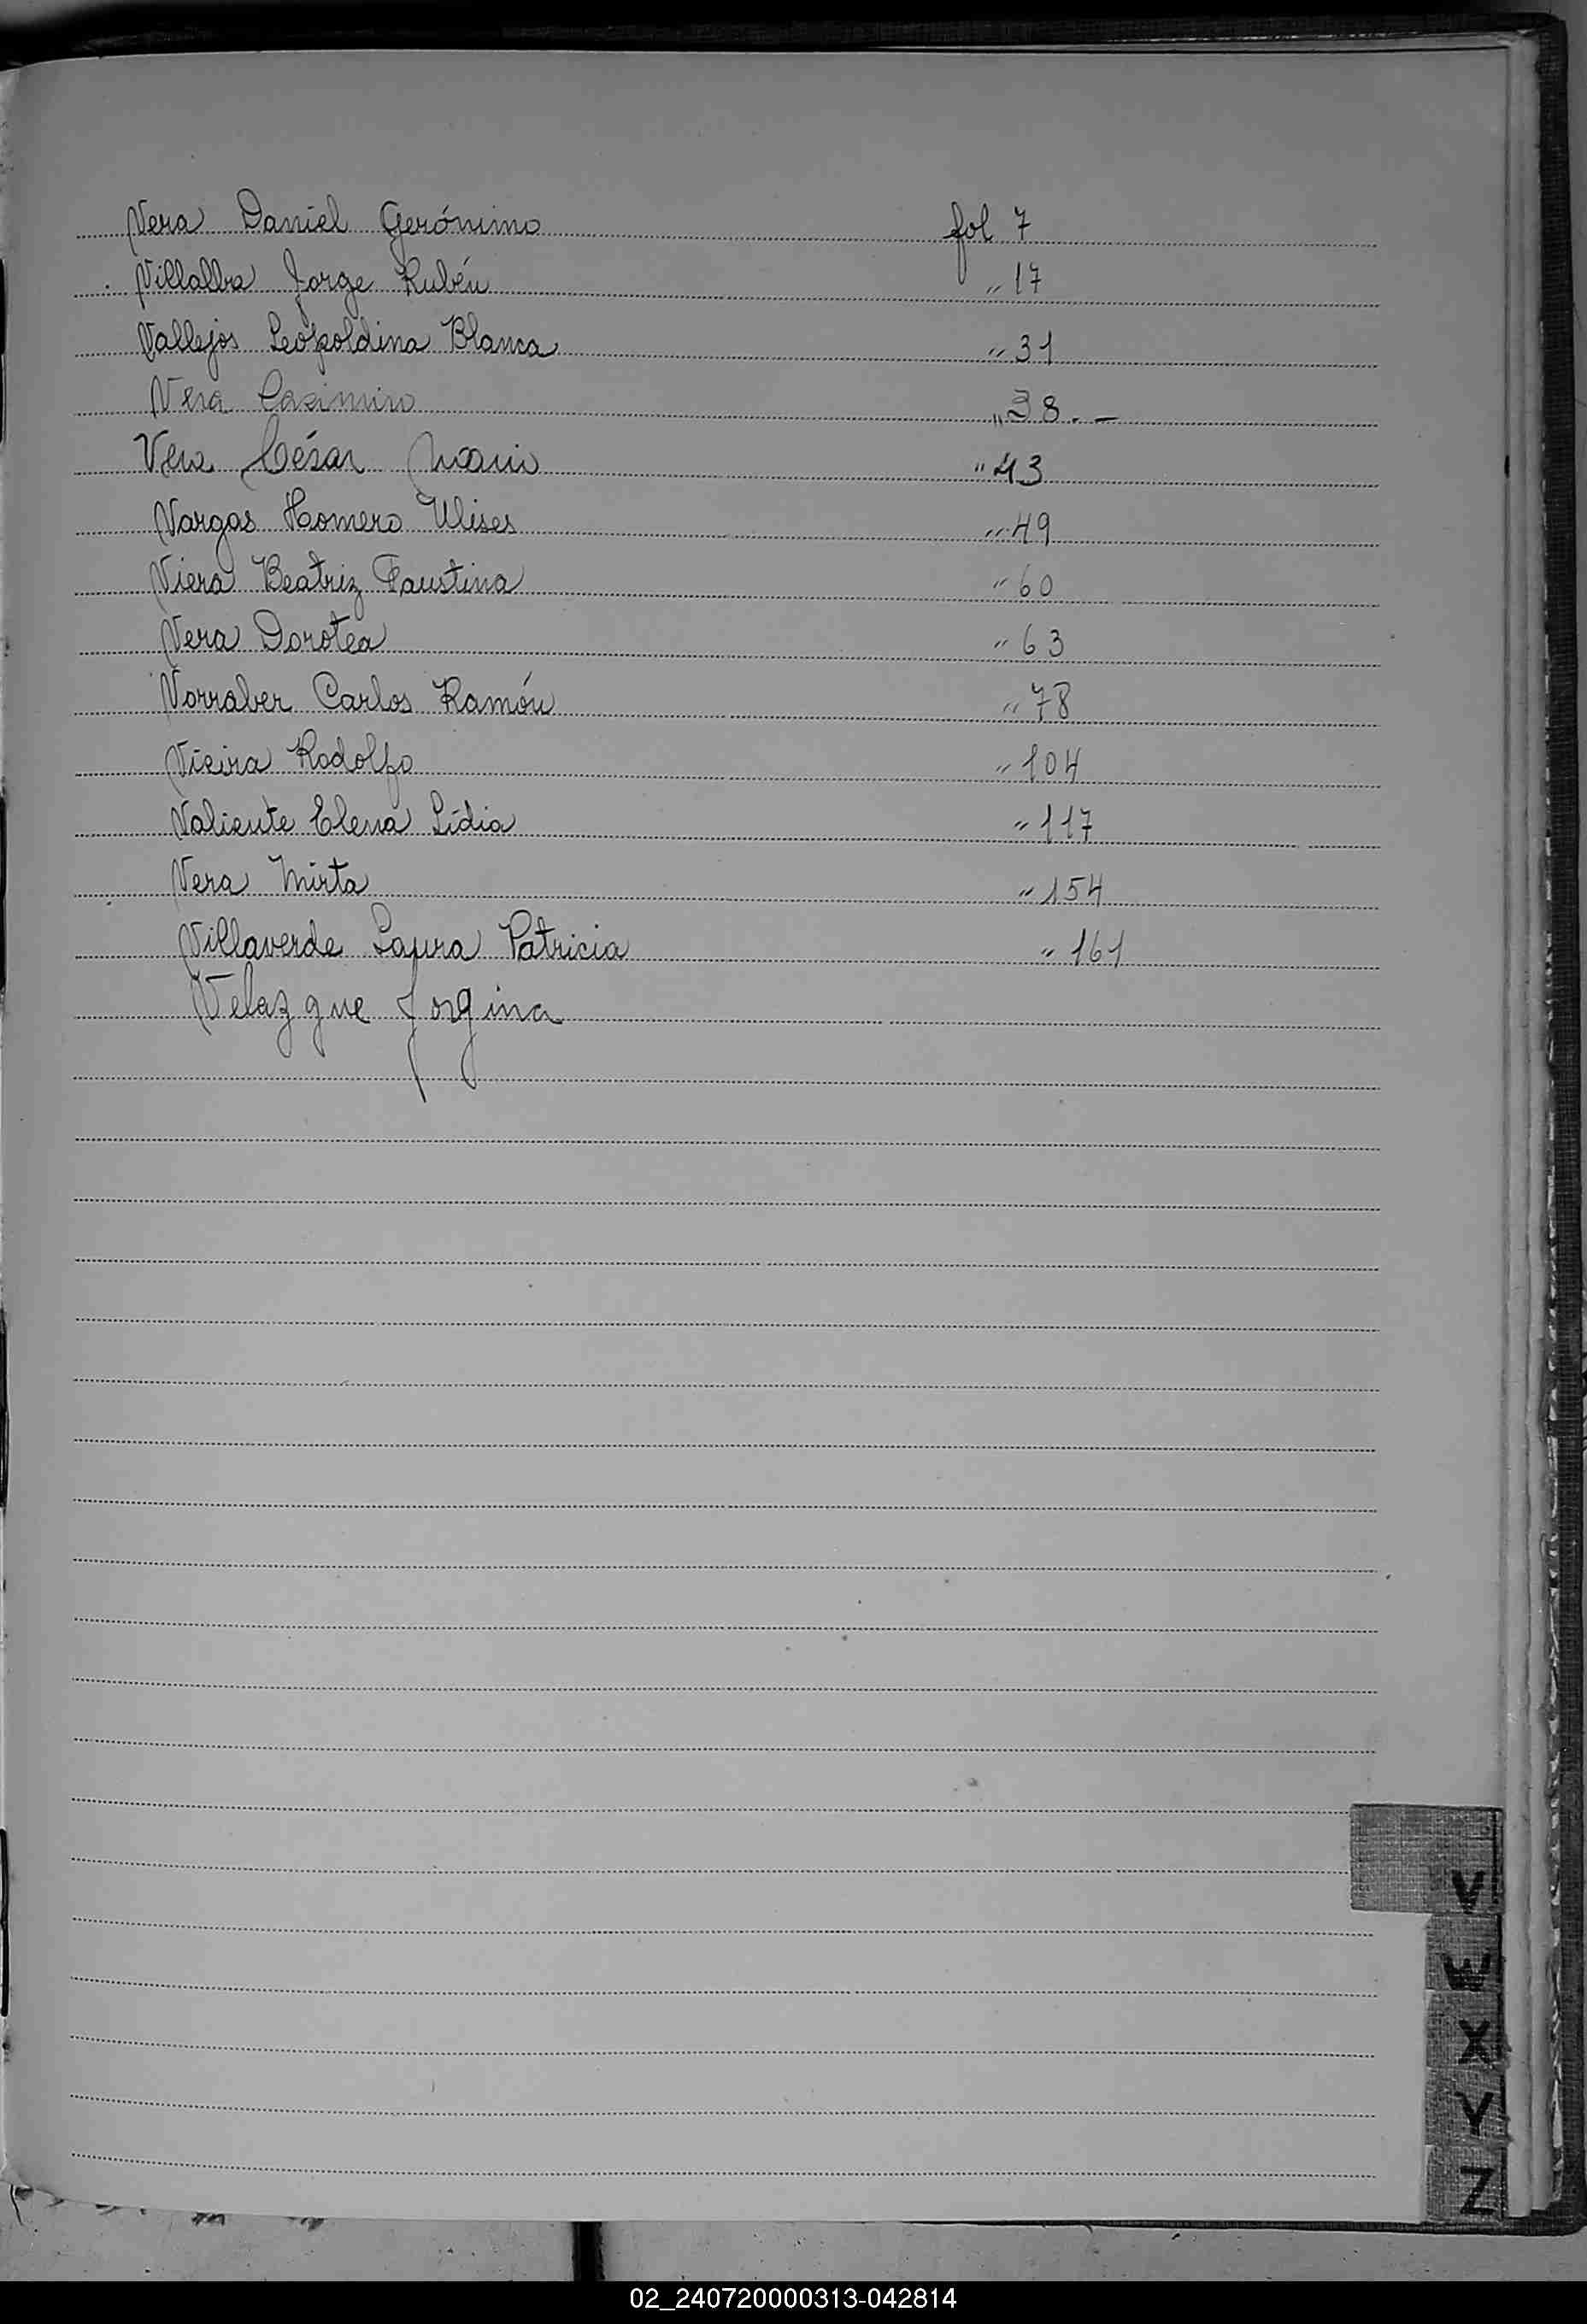 Vera Daniel Gerónimo fol 7
Villalba Jorge Rubén " 17
Vallejos Leopoldina Blanca " 31
Vera Casimiro " 38. —
Vera César Mario " 43
Vargas Homero Ulises " 49
Viera Beatriz Faustina " 60
Vera Dorotea " 63
Vorraber Carlos Ramón " 78
Vieira Rodolfo " 104
Valiente Elena Lidia " 117
Vera Mirta " 154
Villaverde Laura Patricia " 161
Velazque Jorgina
V
W
X
Y
Z
02_240720000313-042814